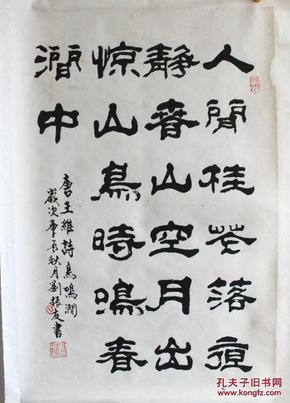 人閒桂花落夜
靜春山空月出
惊山鳥時鳴春
澗中
唐王維詩鳥鳴澗
歲次庚辰秋月劉振友書
孔夫子旧书网
www.kongfz.com